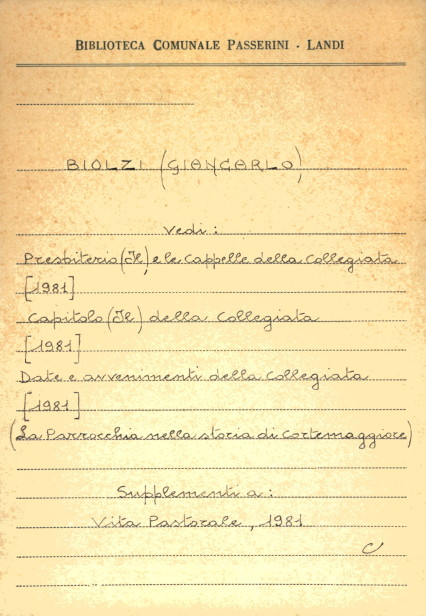 BIBLIOTECA COMUNALE PASSERINI - LANDI
BIOLZI (GIANCARLO)
Vedi:
Presbiterio (Il) e le cappelle della Collegiata
[1981]
Capitolo (Il) della Collegiata
[1981]
Date e avvenimenti della Collegiata
[1981]
(La Parrocchia nella storia di Cortemaggiore)
Supplementi a:
Vita Pastorale, 1981
C